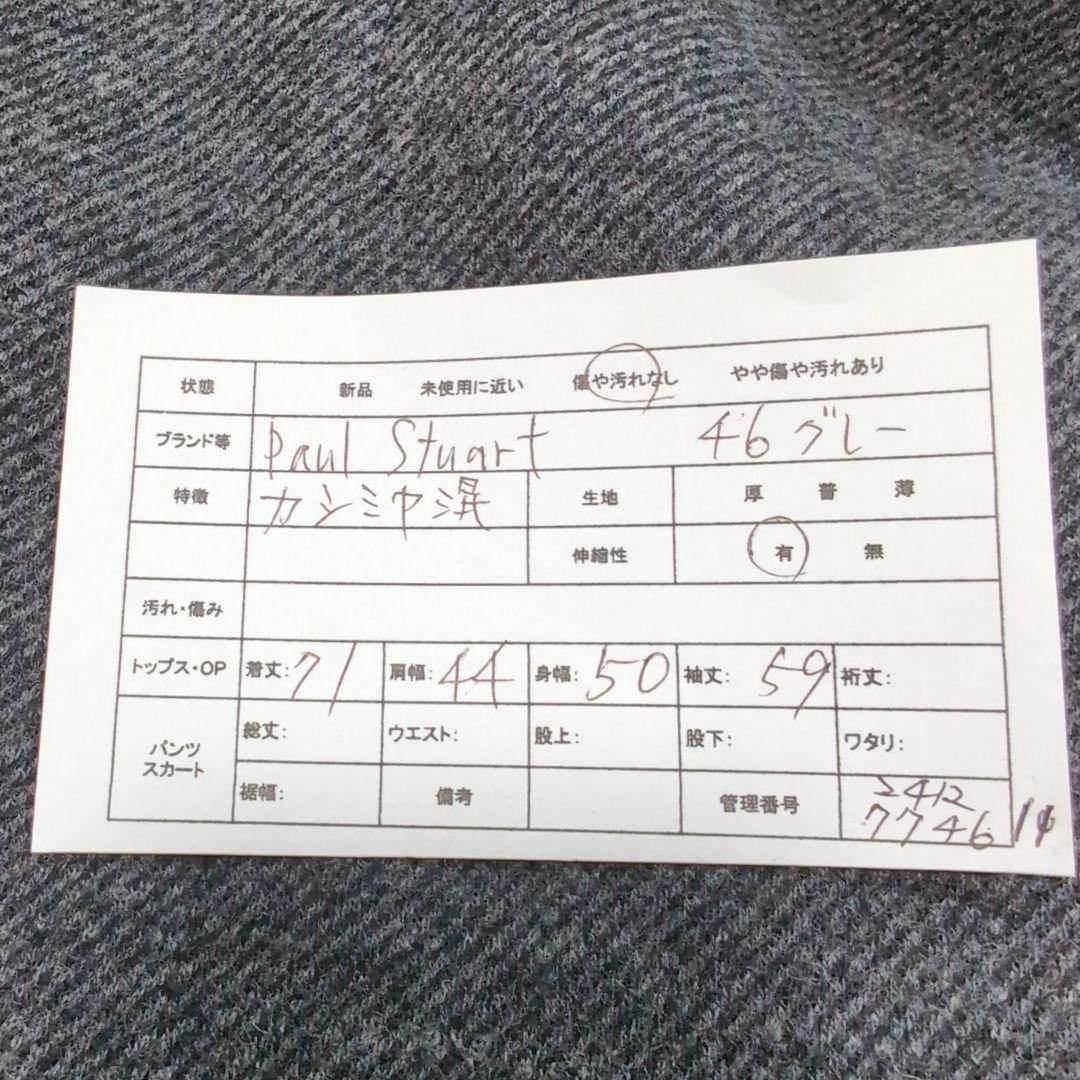 状態 新品 未使用に近い 傷や汚れなし やや傷や汚れあり
ブランド等 Paul Stuart 46 グレー
特徴 カシミヤ混 生地 厚 普 薄
伸縮性 有 無
汚れ・傷み
トップス・OP 着丈:71 肩幅:44 身幅:50 袖丈:59 裄丈:
パンツ
スカート
総丈: ウエスト: 股上: 股下: ワタリ:
裾幅: 備考 管理番号 2412
7746